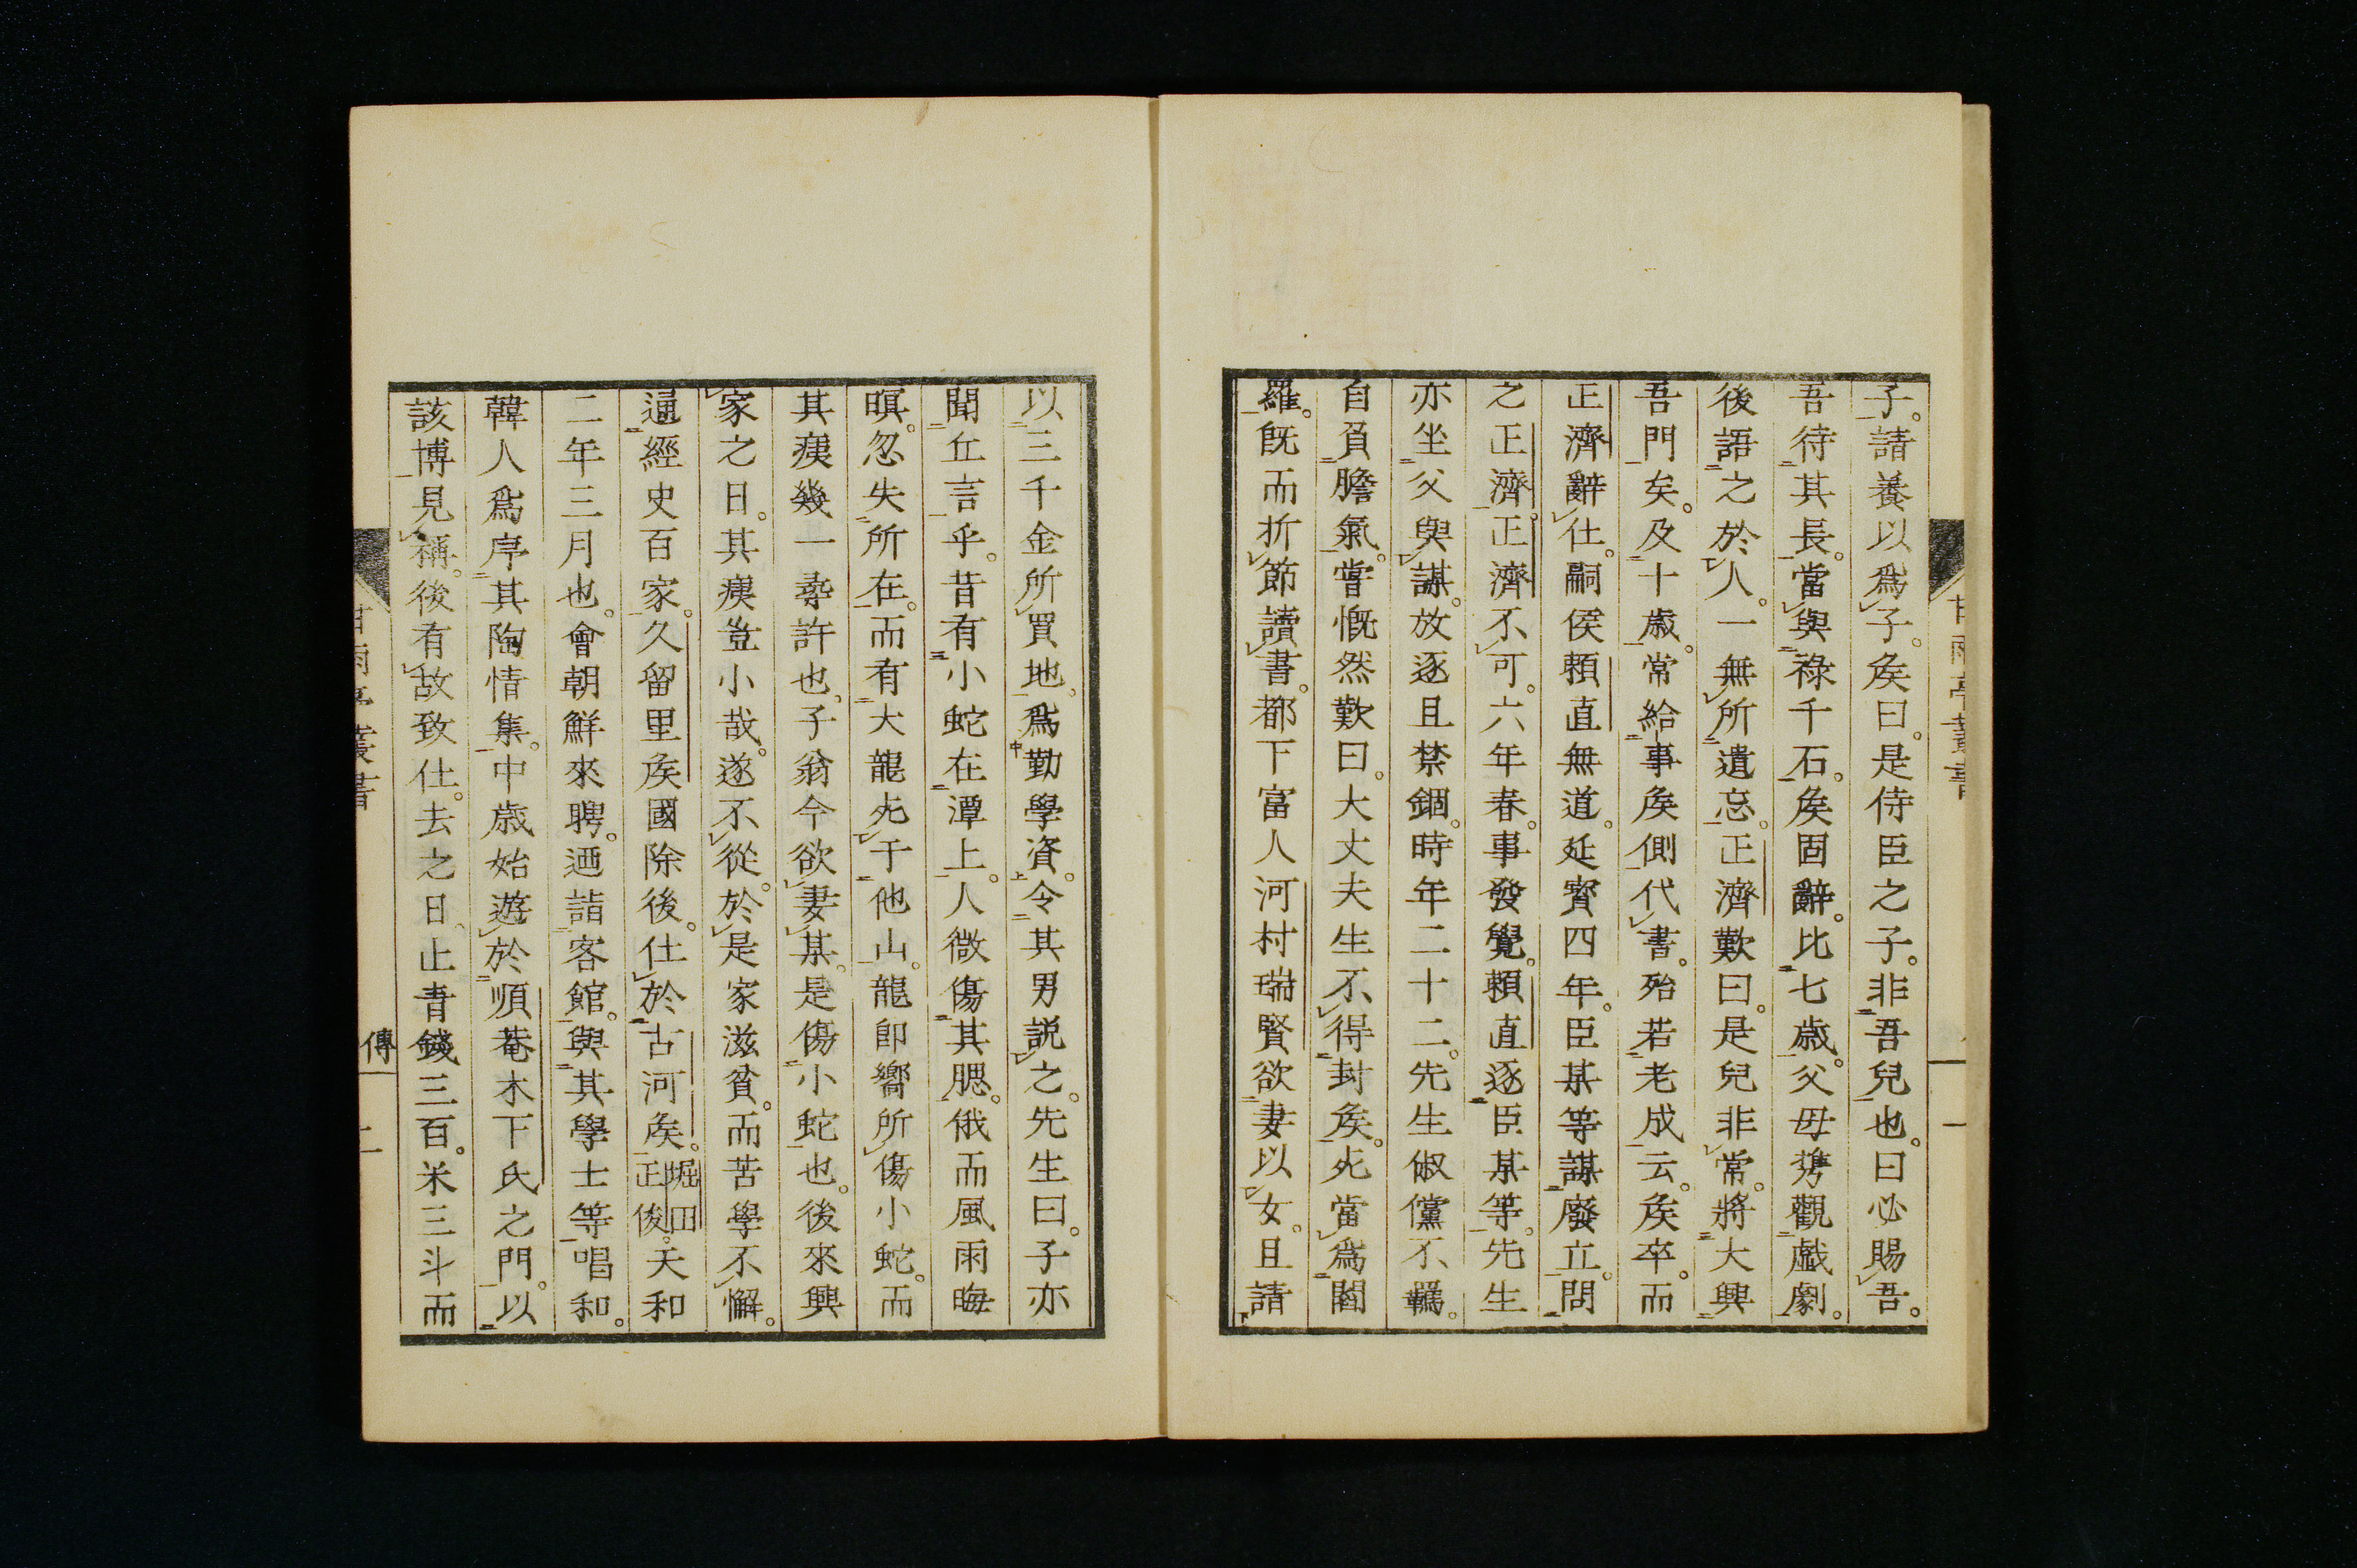 子。請養以爲子。矦曰。是侍臣之子。非吾兒也。曰必賜吾。
吾待其長。當與祿千石。矦固辭。比七歳。父母携觀戲劇。
後語之於人。一無所遺忘。正濟歎曰。是兒非常。將大興
吾門矣。及十歳。常給事矦側代書。殆若老成云。矦卒。而
正濟辭仕。嗣侯頼直無道。延寳四年。臣某等謀廢立。問
之正濟。正濟不可。六年春。事發覺。頼直逐臣某等。先生
亦坐父與謀。放逐且禁錮。時年二十二。先生俶儻不羈。
自負膽氣。嘗慨然歎曰。大丈夫生不得封矦。死當爲閻
羅。旣而折節讀書。都下富人河村瑞賢欲妻以女。且請
以三千金所買地。爲勤學資。令其男説之。先生曰。子亦
聞丘言乎。昔有小蛇在潭上。人微傷其腮。俄而風雨晦
暝。忽失所在。而有大龍死于他山。龍卽嚮所傷小蛇。而
其痍幾一尋許也。子翁今欲妻某。是傷小蛇也。後來興
家之日。其痍豈小哉。遂不從。於是家滋貧。而苦學不懈。
通經史百家。久留里矦國除後。仕於古河矦。堀田正俊。天和
二年三月也。會朝鮮來聘。迺詣客館。與其學士等唱和。
韓人爲序其陶情集。中歳始遊於順菴木下氏之門。以
該博見稱。後有故致仕。去之日。止青錢三百。米三斗而
甘雨亭叢書
傳
二